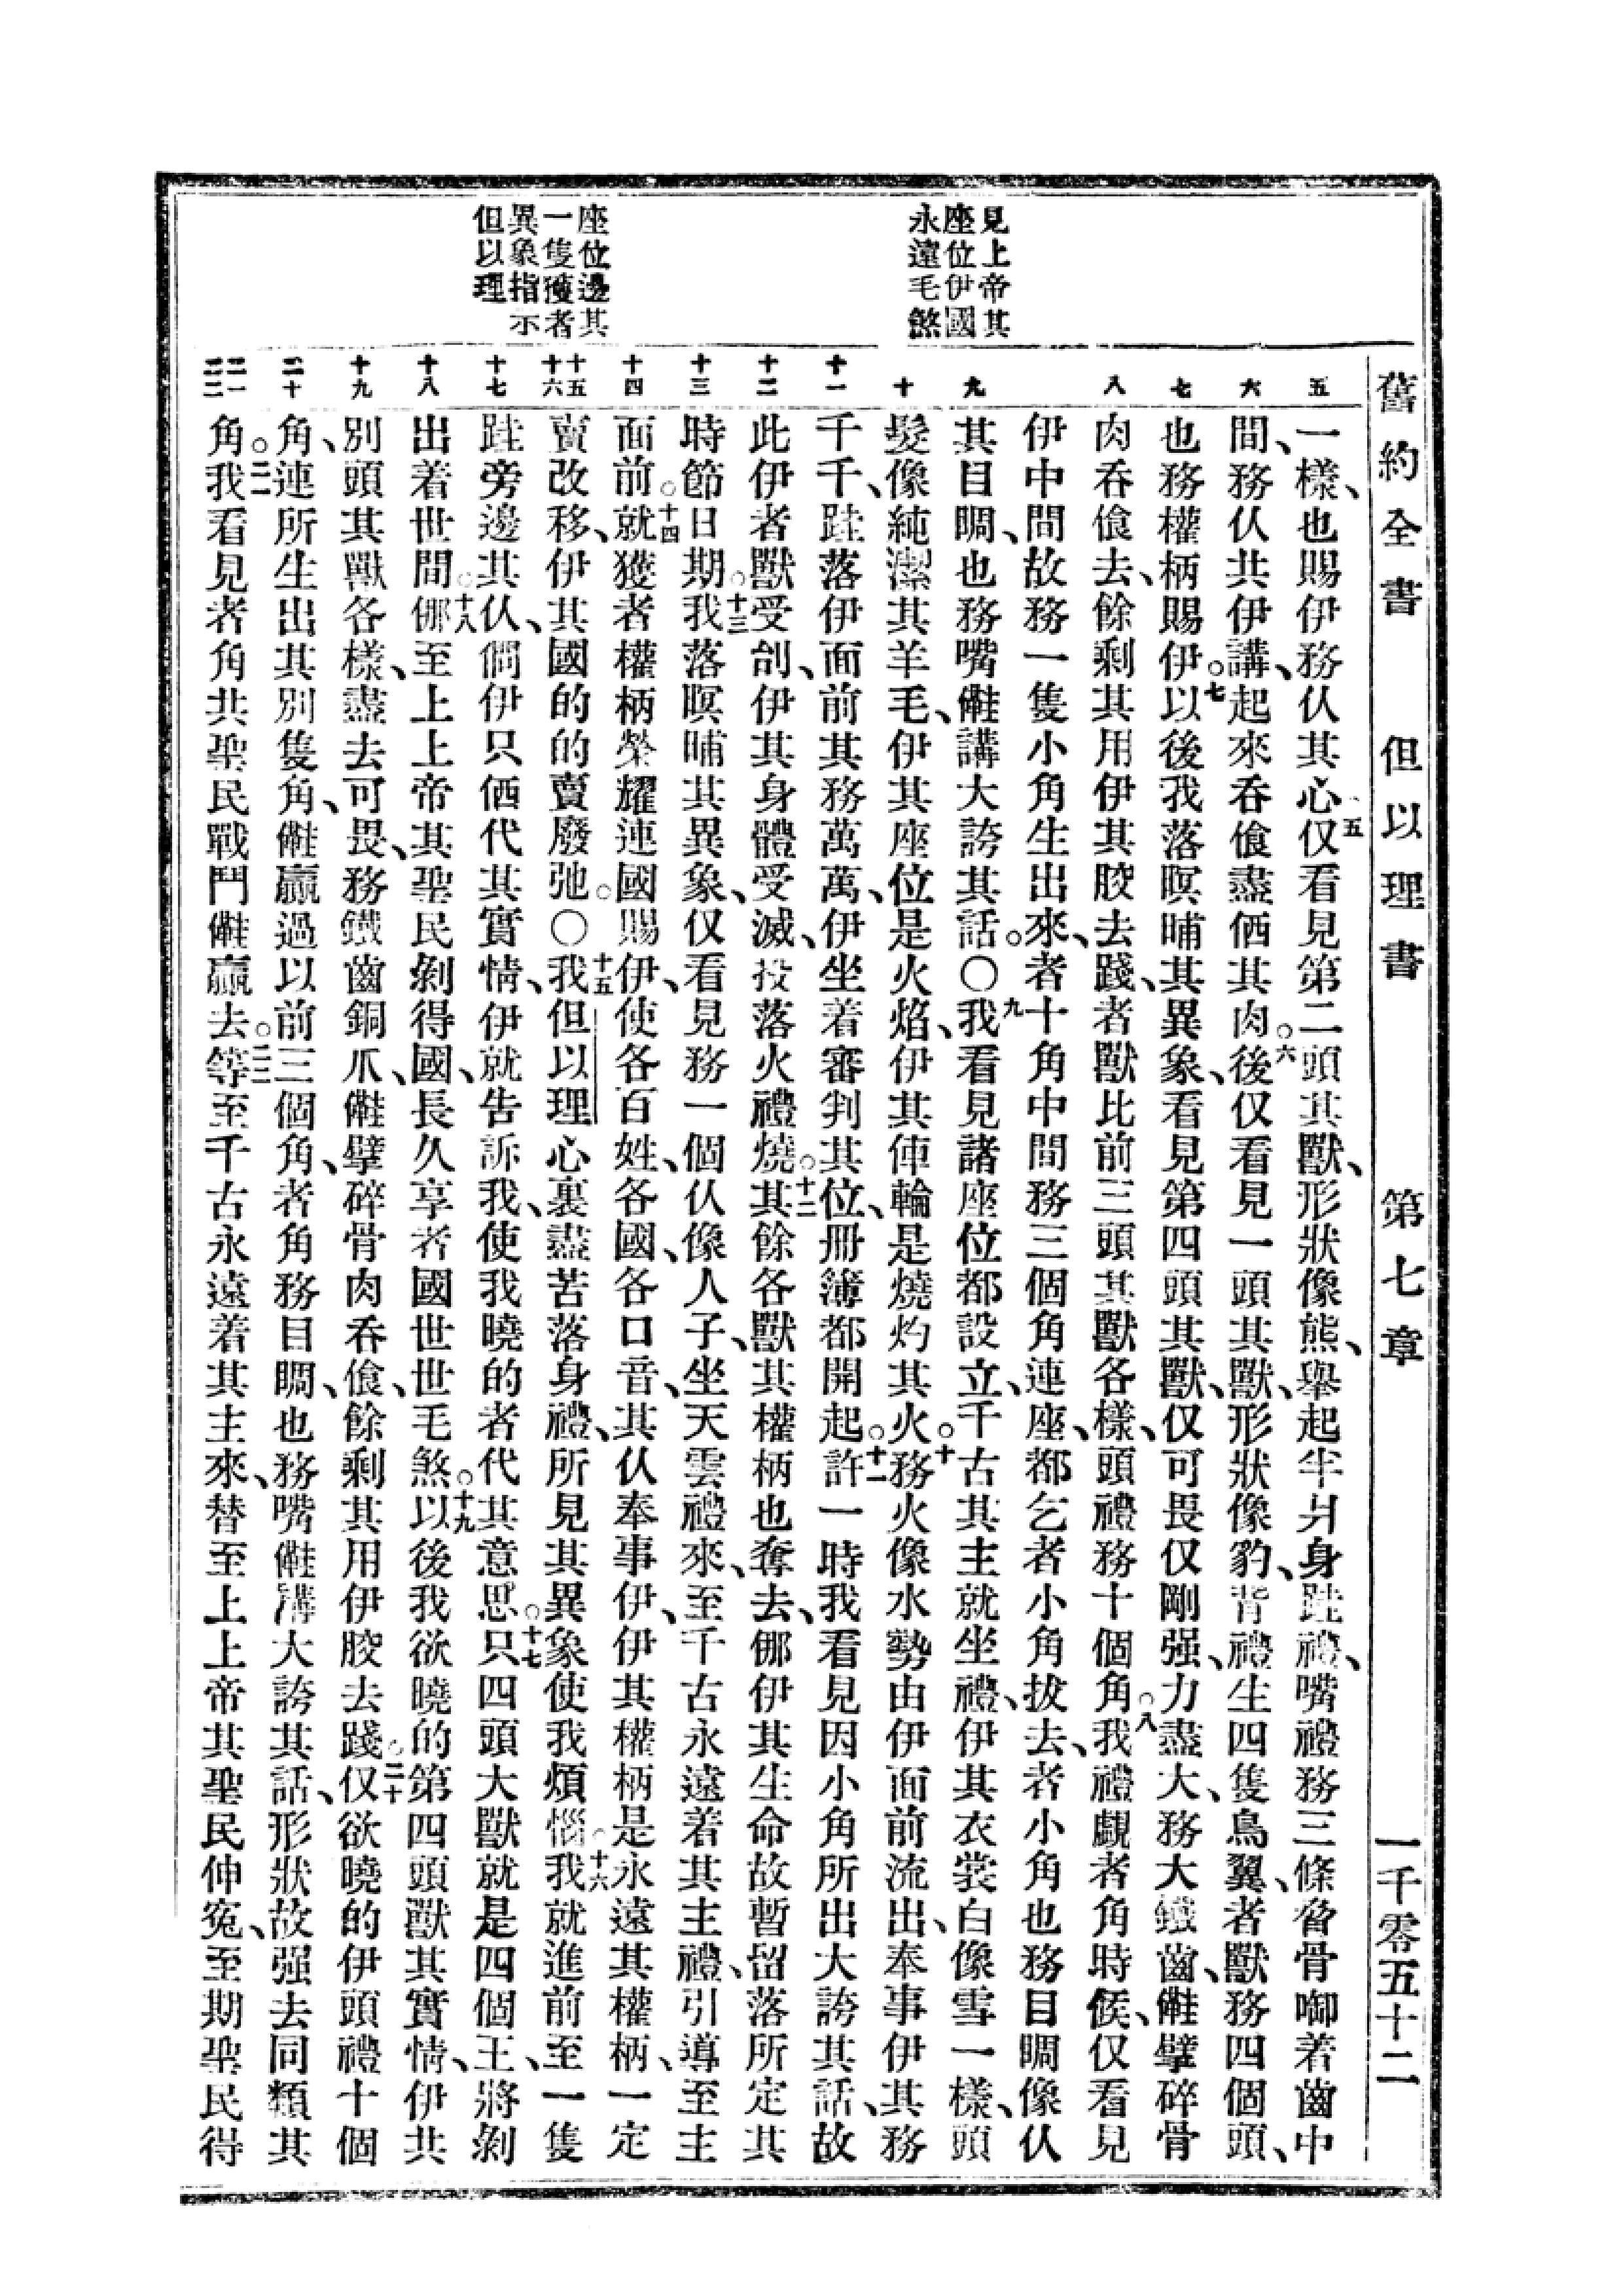 舊約全書 但以理書 第七章 一千零五十二
見上帝其
座位伊國
永遠毛煞
座位邊其
一隻獲者
異象指示
但以理
五
六
七
八
九
十
十一
十二
十三
十四
十五
十六
十七
十八
十九
二十
二一
二二
一樣、也賜伊務仈其心、五仅看見第二頭其獸、形狀像熊、舉起半爿身跬禮、嘴禮務三條脅骨啣着齒中
間、務仈共伊講、起來吞飡盡𠉂其肉。六後仅看見一頭其獸、形狀像豹、背禮生四隻鳥翼、者獸務四個頭、
也務權柄賜伊。七以後我落暝晡其異象、看見第四頭其獸、仅可畏仅剛强、力盡大、務大鐵齒、𣍐擘碎骨
肉吞飡去、餘剩其用伊其骹去踐、者獸比前三頭其獸各樣、頭禮務十個角。八我禮覷者角時候、仅看見
伊中間、故務一隻小角生出來、者十角中間務三個角連座、都乞者小角拔去、者小角也務目睭像仈
其目睭、也務嘴𠍁講大誇其話。〇九我看見諸座位都設立、千古其主就坐禮、伊其衣裳白像雪一樣、頭
髮像純潔其羊毛、伊其座位是火焰、伊其俥輪是燒灼其火。十務火像水勢由伊面前流出、奉事伊其務
千千、跬落伊面前其務萬萬、伊坐着審判其位、册簿都開起。十一許一時我看見因小角所出大誇其話、故
此伊者獸受刣、伊其身體受滅、投落火禮燒。十二其餘各獸其權柄也奪去、𨚫伊其生命故暫留落所定其
時節日期。十三我落暝晡其異象、仅看見務一個仈像人子、坐天雲禮來、至千古永遠着其主禮、引導至主
面前。十四就獲者權柄榮耀連國賜伊、使各百姓、各國、各口音、其仈奉事伊、伊其權柄是永遠其權柄、一定
賣改移、伊其國的的賣廢弛。〇十五我但以理心裏盡苦落身禮、所見其異象使我煩惱。十六我就進前至一隻
跬旁邊其仈、問伊只𠉂代其實情、伊就告訴我、使我曉的者代其意思。十七只四頭大獸就是四個王、將剝
出着世間。十八𨚫至上上帝其聖民剝得國、長久享者國世世毛煞。十九以後我欲曉的第四頭獸其實情、伊共
別頭其獸各樣、盡去可畏、務鐵齒銅爪、𠍁擘碎骨肉吞飡、餘剩其用伊骹去踐。二十仅欲曉的伊頭禮十個
角、連所生出其別隻角、𠍁贏過以前三個角、者角務目睭、也務嘴𠍁講大誇其話、形狀故强去同類其
角。二一我看見者角共聖民戰鬥𠍁贏去。二二等至千古永遠着其主來、替至上上帝其聖民伸寃、至期聖民得